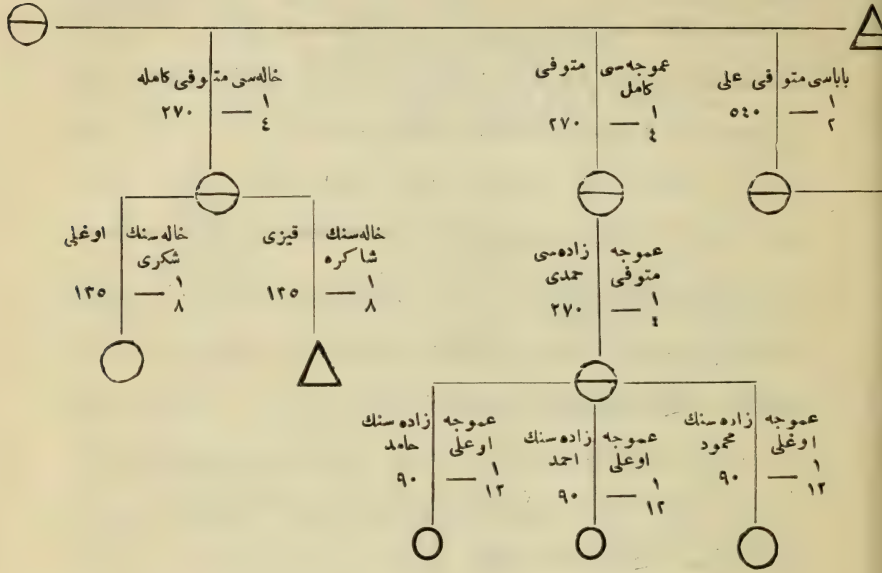 باباسی متوفی علی
١
٢
٥٤٠
عموجه‌سی متوفی
كامل
١
٤
٢٧٠
خاله‌سی متوفی كامله
١
٤
٢٧٠
عموجه زاده‌سی
متوفی حمدی
١
٤
٢٧٠
خاله‌سنك قیزی
شاكره
١
٨
١٣٥
خاله‌سنك اوغلی
شكری
١
٨
١٣٥
عموجه زاده‌سنك
اوغلی محمود
١
١٢
٩٠
عموجه زاده‌سنك
اوعلی احمد
١
١٢
٩٠
عموجه زاده‌سنك
اوعلی حامد
١
١٢
٩٠